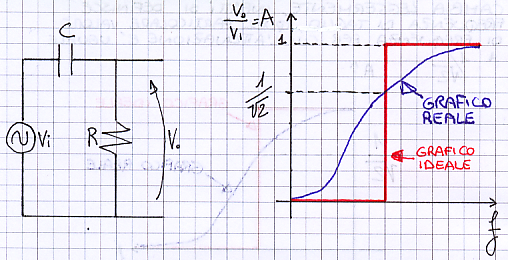 C
Vi
R
Vo
Vo/Vi = A
1
1/√2
GRAFICO
REALE
GRAFICO
IDEALE
f